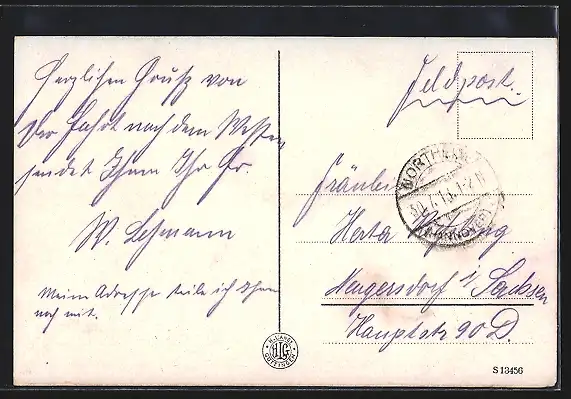 Herzlichen Gruß von
der Fahrt nach dem Westen
sendet Ihnen Ihr Fr.
W. Lehmann
Meine Adresse teile ich Ihnen
noch mit.
Feldpost.
NORTHEIM
(HANNOVER)
Fräulein
Herta
Hengersdorf i/ Sachsen
Hauptstr 90 D.
HLG
S 13456